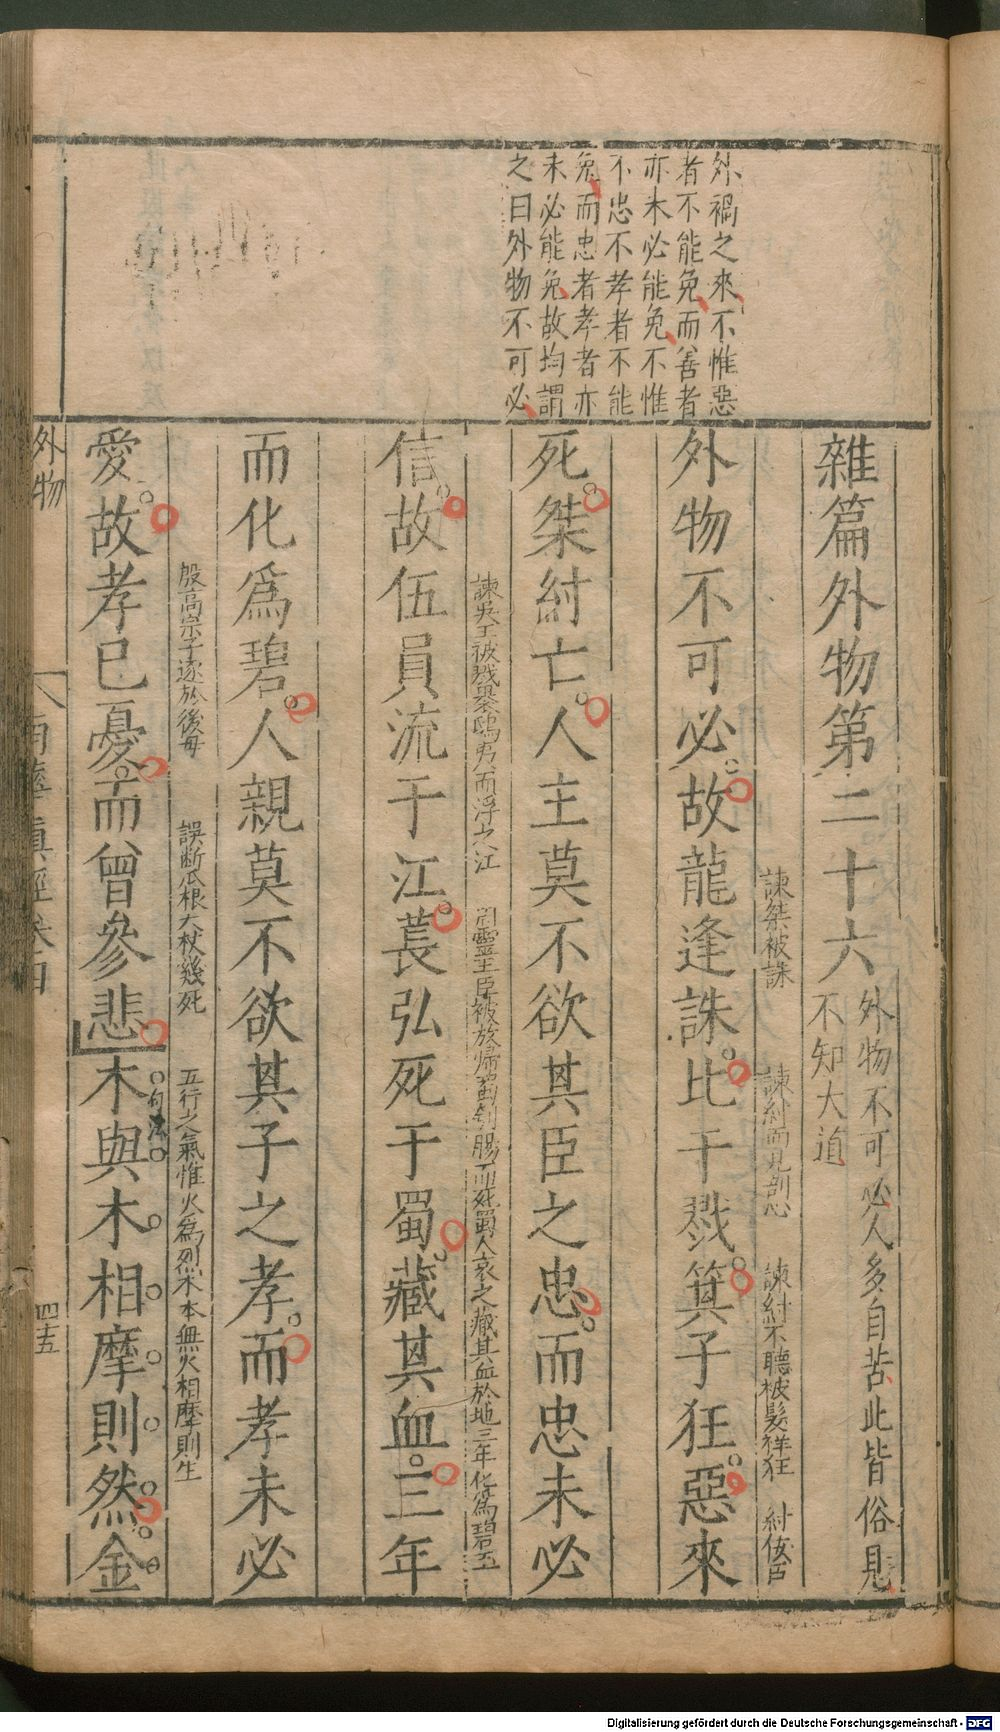 外禍之來不惟惡
者不能免而善者
亦未必能免不惟
不忠不孝者不能
免而忠者孝者亦
未必能免故均謂
之曰外物不可必
雜篇外物第二十六
外物不可必人多自苦此皆俗見
不知大道
諫桀被誅
諫紂而見剖心
諫紂不聽被髮徉狂
紂佞臣
外物不可必故龍逢誅比干戮箕子狂惡來
死桀紂亡人主莫不欲其臣之忠而忠未必
諫吳王被戮梟鴟夷而浮之江
靈王臣被放歸蜀刳腸而死蜀人哀之藏其血於地三年化爲碧玉
信故伍員流于江萇弘死于蜀藏其血三年
而化爲碧人親莫不欲其子之孝而孝未必
殷高宗子逐於後母
誤斷瓜根大杖幾死
五行之氣惟火爲烈木本無火相摩則生
愛故孝已憂而曾參悲木與木相摩則然金
句法
外物
南華眞經卷四
四十五
Digitalisierung gefördert durch die Deutsche Forschungsgemeinschaft - DFG